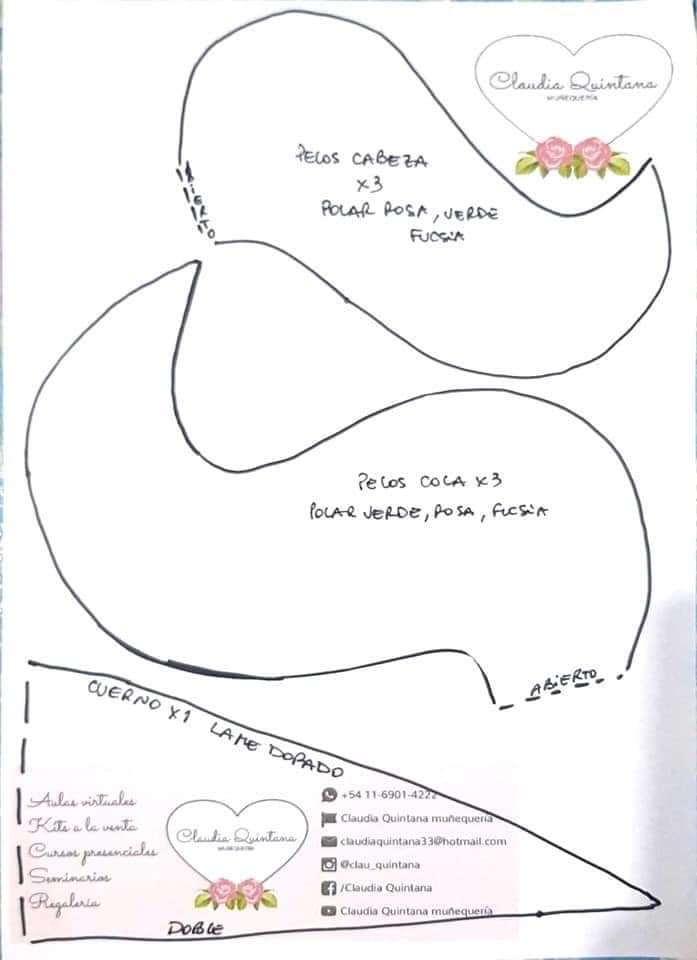 Claudia Quintana
MUÑEQUERÍA
PELOS CABEZA
x3
POLAR ROSA, VERDE
FUCSIA
ABIERTO
PELOS COLA x3
POLAR VERDE, ROSA, FUCSIA
ABIERTO
CUERNO x1 LAME DORADO
Aulas virtuales
Kits a la venta
Cursos presenciales
Seminarios
Regalería
Claudia Quintana
MUÑEQUERÍA
+54 11-6901-4222
Claudia Quintana muñequería
claudiaquintana33@hotmail.com
@clau_quintana
/Claudia Quintana
Claudia Quintana muñequería
DOBLE